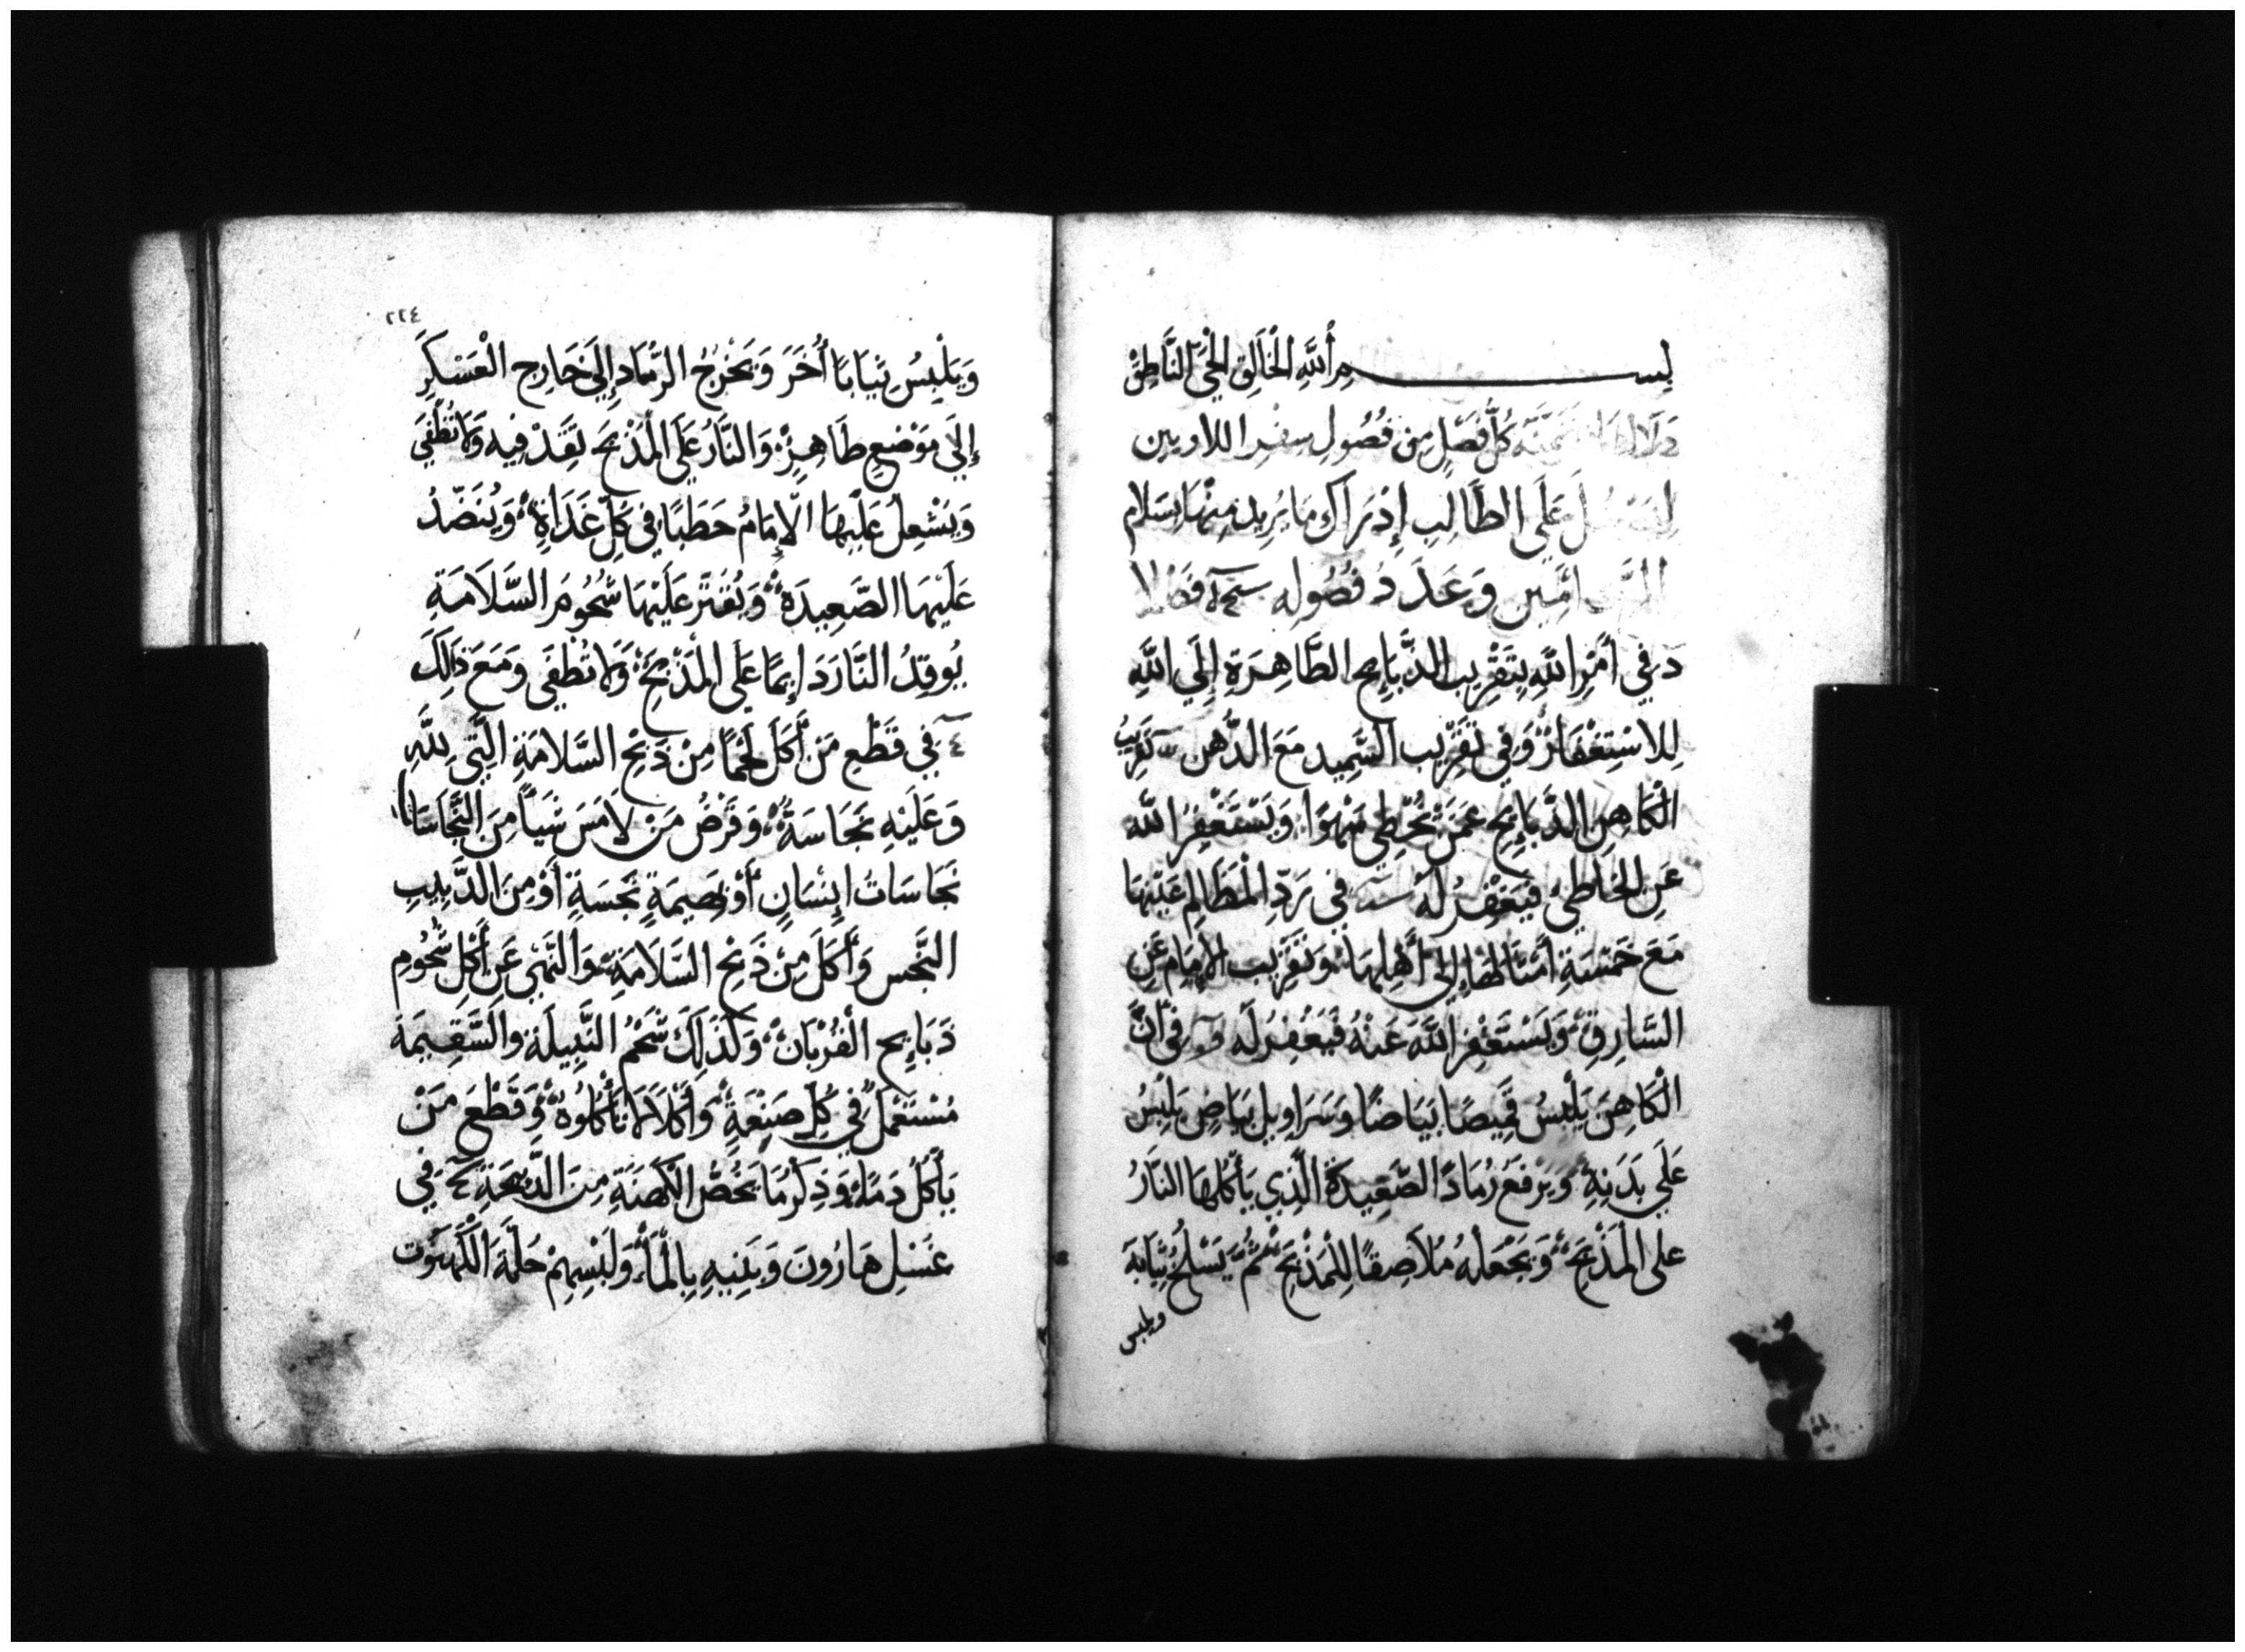 بِسـم اللَّهِ الْخَالِقِ الْحَيِّ النَّاطِق
كُلُّ فَصْلٍ مِن فُصُولِ سِفْرِ اللاويين
عَلَى الطَّالِبِ إِدْرَاك مَا يُرِيد مِنْهَا بِسَلَام
امِين وَعَدَد فُصُولِه
في أَمْرِ اللَّهِ بِتَقْرِيب الذَّبَايِح الطَّاهِرَة إِلَى اللَّهِ
لِلاسْتِغْفَار وَفِي تَقْرِيب السَّمِيد مَعَ الدُّهن تَقْرِيبُ
الْكَاهِن الذَّبَايِح عَمَّن يُخْطِي سَهْوًا وَيَسْتَغْفِرُ اللَّه
عَنِ الْخَاطِي فَيَغْفِرُ لَهُ فِي رَدِّ الْمَظَالِم عَيْنهَا
مَعَ خَمْسَةِ أَمْثَالِهَا إِلَى أَهْلِهَا وَتَقْرِيب الإِمَام عَنِ
السَّارِق وَيَسْتَغْفِر اللَّهَ عَنْهُ فَيَغْفِرُ لَه فِي أَنَّ
الْكَاهِنَ يَلْبَسُ قَمِيصًا بَيَاضًا وَسَرَاوِيل بَيَاضٍ يَلْبِسُ
عَلَى بَدَنِهِ وَيَرْفَعُ رَمَادَ الصَّعِيدَة الَّذِي يَأْكُلهَا النَّارُ
عَلَى الْمَذْبَحِ وَيَجْعَلهُ مُلَاصِقًا لِلْمَذْبَحِ ثُمَّ يَسْلَخُ ثِيَابَهَ
ويلبس
٢٢٤
وَيَلْبِسُ ثِيَابًا أُخَرَ وَيَخْرِجُ الرَّمَاد إِلَى خَارِج الْعَسْكَرِ
إِلَى مَوْضِعٍ طَاهِرٍ وَالنَّارُ عَلَى الْمَذْبَحَ تَقِدْ فِيه وَلَا تُطْفَى
وَيَشْعِلُ عَلَيْهَا الإِمَامُ حَطَبًا فِي كُلِّ غَدَاةٍ وَيُنَضِّدُ
عَلَيْهَا الصَّعِيدَة وَيُقَتِّر عَلَيْهَا شُحُومَ السَّلَامَةِ
يُوقِدُ النَّارَ دَايِمًا عَلَى الْمَذْبَحَ وَلَا تُطْفَى وَمَعَ ذَلِكَ
فِي قَطْعِ مَن أَكَلَ لَحْمًا مِنْ ذَبْحِ السَّلَامَةِ الَّتِي لِلَّهِ
وَعَلَيْهِ نَجَاسَةٌ وَفَرْضُ مَن لَامَسَ شَيأً مِنَ النَّجَاسَات
نَجَاسَاتُ إِنْسَانٍ أَوْ بَهِيمَةٍ نَجَسَةٍ أَوْ مِنَ الدَّبِيبِ
النَّجس وَأَكَلَ مِنْ ذَبْحِ السَّلَامَة وَالنَّهْي عَنْ أَكْلِ شُحُومِ
ذَبَايِح الْقُرْبَان وَكَذَلِكَ شَحْمُ النَّبِيلَةِ وَالسَّقِيمَة
مُسْتَعْمَل فِي كُلِّ صَنْعَةٍ وَأَكْلًا لَا تَأْكُلُوهُ وَقَطْعَ مَنْ
يَأْكُلُ دَمًا وَذِكْر مَا يَخُصُّ الْكَهَنَةِ مِنَ الذَّبِيحَةِ فِي
غَسْلِ هَارُونَ وَبَنِيهِ بِالْمَاء وَلَبْسِهِمْ حُلَّةَ الْكَهَنُوت